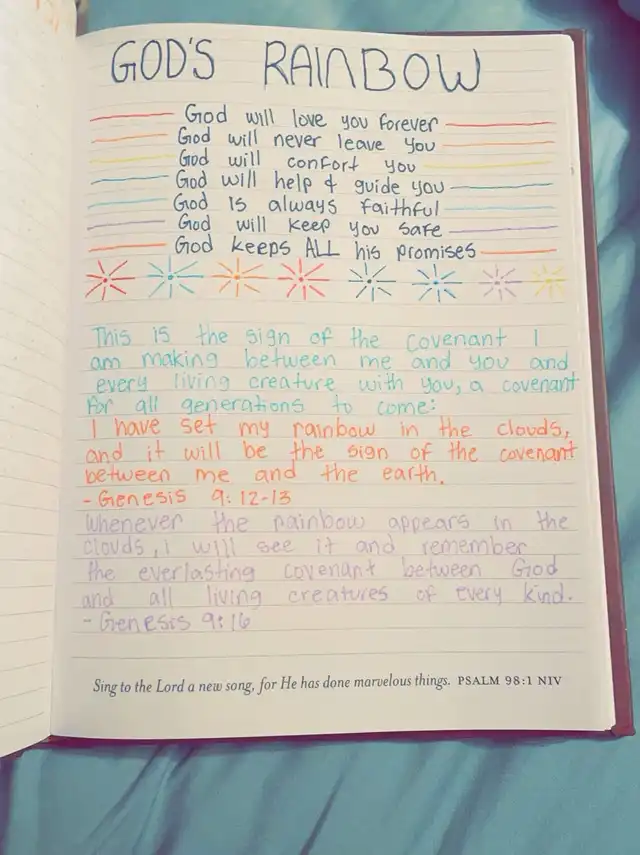 GOD'S RAINBOW
God will love you forever
God will never leave you
God will confort you
God will help & guide you
God is always faithful
God will keep you safe
God keeps ALL his promises
This is the sign of the covenant I
am making between me and you and
every living creature with you, a covenant
for all generations to come:
I have set my rainbow in the clouds,
and it will be the sign of the covenant
between me and the earth.
- Genesis 9:12-13
Whenever the rainbow appears in the
clouds, i will see it and remember
the everlasting covenant between God
and all living creatures of every kind.
- Genesis 9:16
Sing to the Lord a new song, for He has done marvelous things. PSALM 98:1 NIV